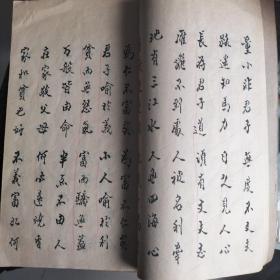 量小非君子 無度不丈夫
路遙知馬力 日久見人心
長存君子道 須有丈夫志
雁飛不到處 人被名利牽
地有三江水 人無四海心
為仁不富矣 為富不仁矣
君子喻於義 小人喻於利
貧而無怨 富而
万般皆由命 半点不由人
在家敬父母 何必遠燒香
家和貧也好 不義富如何